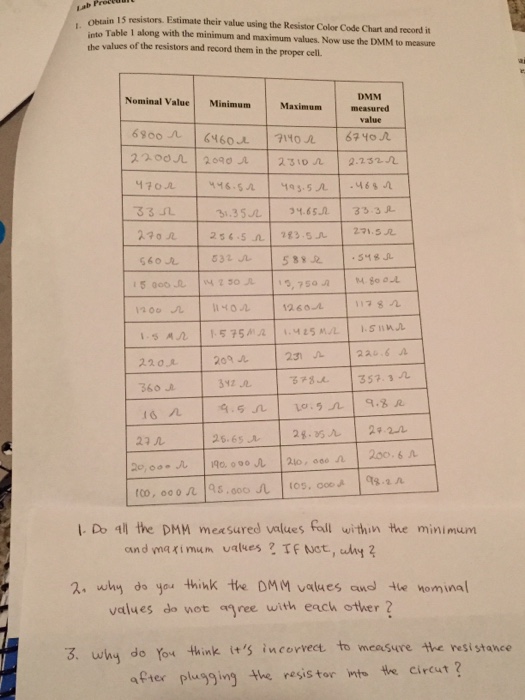 Lab Procedure
1. Obtain 15 resistors. Estimate their value using the Resistor Color Code Chart and record it
into Table 1 along with the minimum and maximum values. Now use the DMM to measure
the values of the resistors and record them in the proper cell.
Nominal Value Minimum Maximum DMM measured value
6800 Ω 6460 Ω 7140 Ω 6740 Ω
2200 Ω 2090 Ω 2310 Ω 2.232 Ω
470 Ω 446.5 Ω 493.5 Ω .468 Ω
33 Ω 31.35 Ω 34.65 Ω 33.3 Ω
270 Ω 256.5 Ω 283.5 Ω 271.5 Ω
560 Ω 532 Ω 588 Ω .548 Ω
15 000 Ω 14250 Ω 15,750 Ω 14 800 Ω
1200 Ω 1140 Ω 1260 Ω 1178 Ω
1.5 MΩ 1.575 MΩ 1.425 MΩ 1.511 MΩ
220 Ω 209 Ω 231 Ω 220.6 Ω
360 Ω 342 Ω 378 Ω 357.3 Ω
10 Ω 9.5 Ω 10.5 Ω 9.8 Ω
27 Ω 26.65 Ω 28.35 Ω 27.2 Ω
20,000 Ω 190,000 Ω 210,000 Ω 200.6 Ω
100,000 Ω 95,000 Ω 105,000 Ω 98.2 Ω
1. Do all the DMM measured values fall within the minimum
and maximum values? If Not, why?
2. why do you think the DMM values and the nominal
values do not agree with each other?
3. why do You think it's incorrect to measure the resistance
after plugging the resistor into the circut?